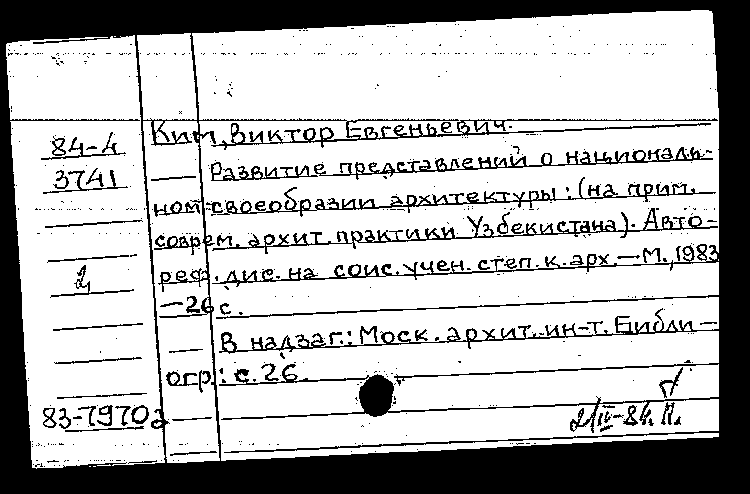 84-4
3741
2
Ким, Виктор Евгеньевич.
Развитие представлений о националь-
ном своеобразии архитектуры: (на прим.
соврем. архит. практики Узбекистана). Авто-
реф. дис. на соис. учен. степ. к. арх. — М., 1983
— 26 с.
В надзаг.: Моск. архит. ин-т. Библи-
огр.: с. 26.
83-79702
2/IV-84.